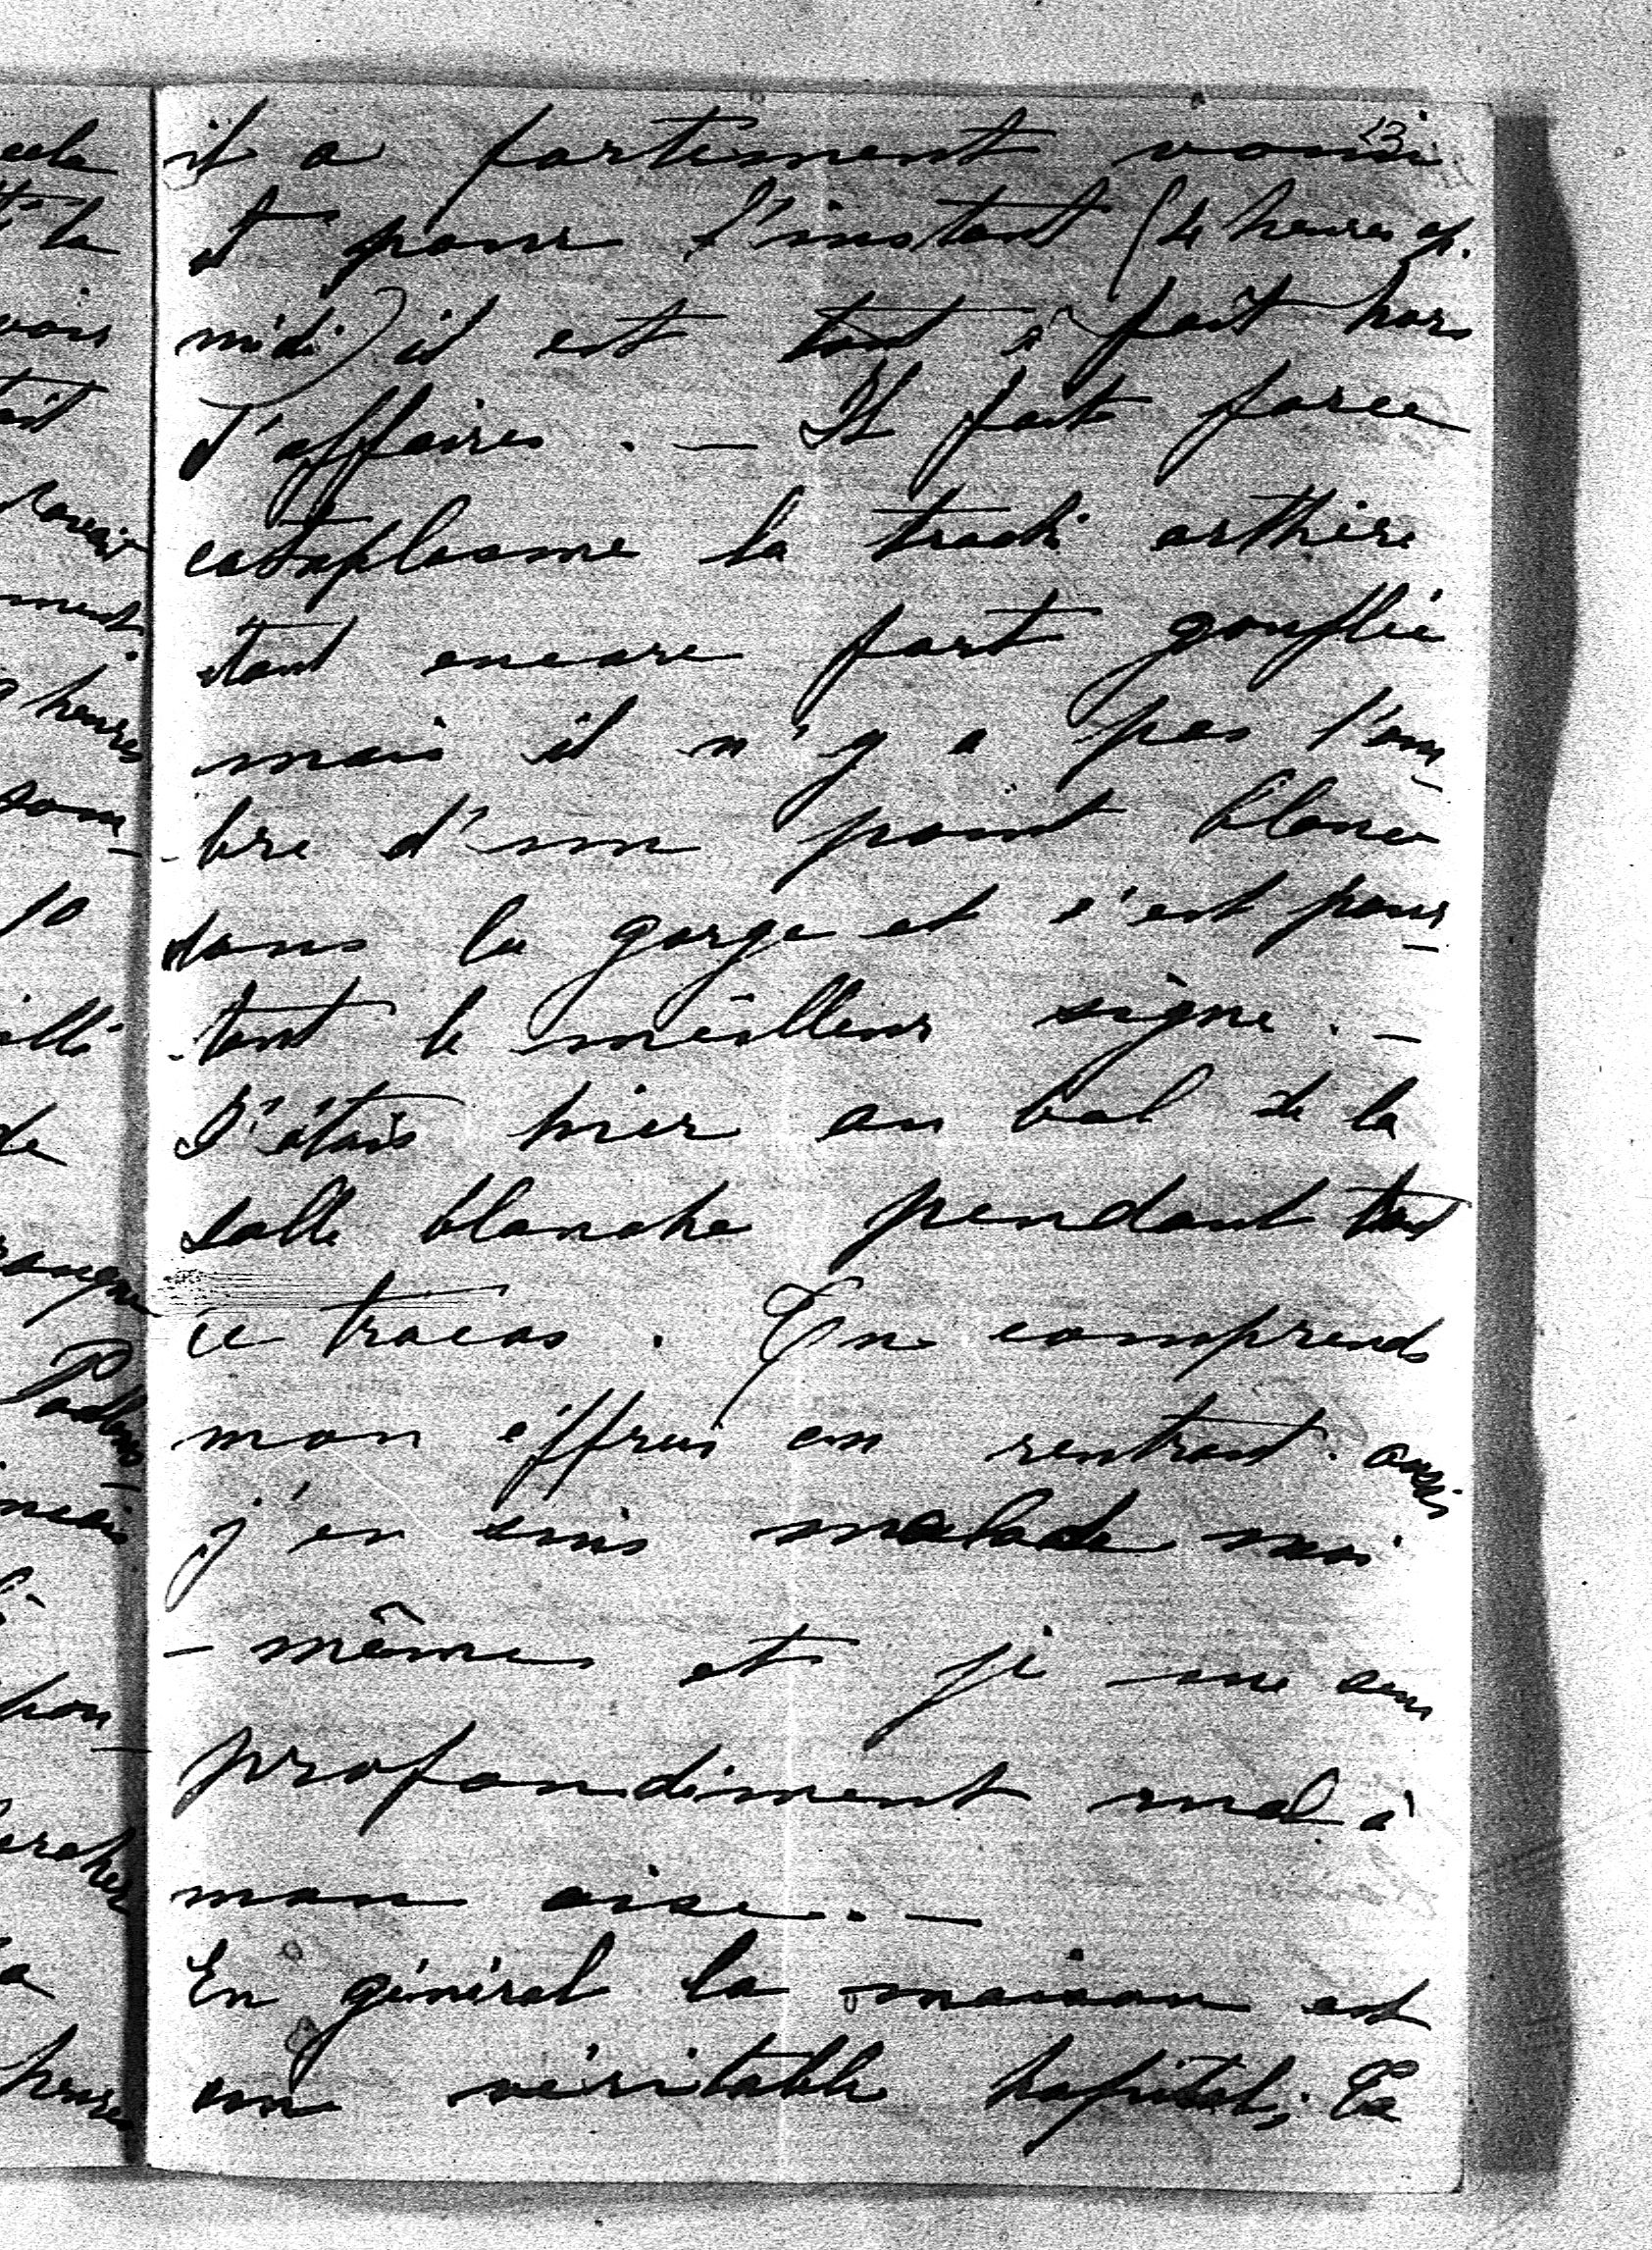 13
il a fortement vomi
et pour l'instant (4 heures ap.
midi) il est tout à fait hors
d'affaires. — Il fait force
cataplasme la trach arthère
étant encore fort gonflée
mais il n'y a pas l'om-
-bre d'un point blanc
dans la gorge et c'est pour-
-tant le meilleur signe. —
J'étais hier au bal de la
salle blanche pendant tout
ce tracas. Tu comprends
mon éffroi en rentrant. aussi
j'en suis malade moi
-même et je me sens
profondément mal à
mon aise. —
En général la maison est
un véritable hopital; Ce